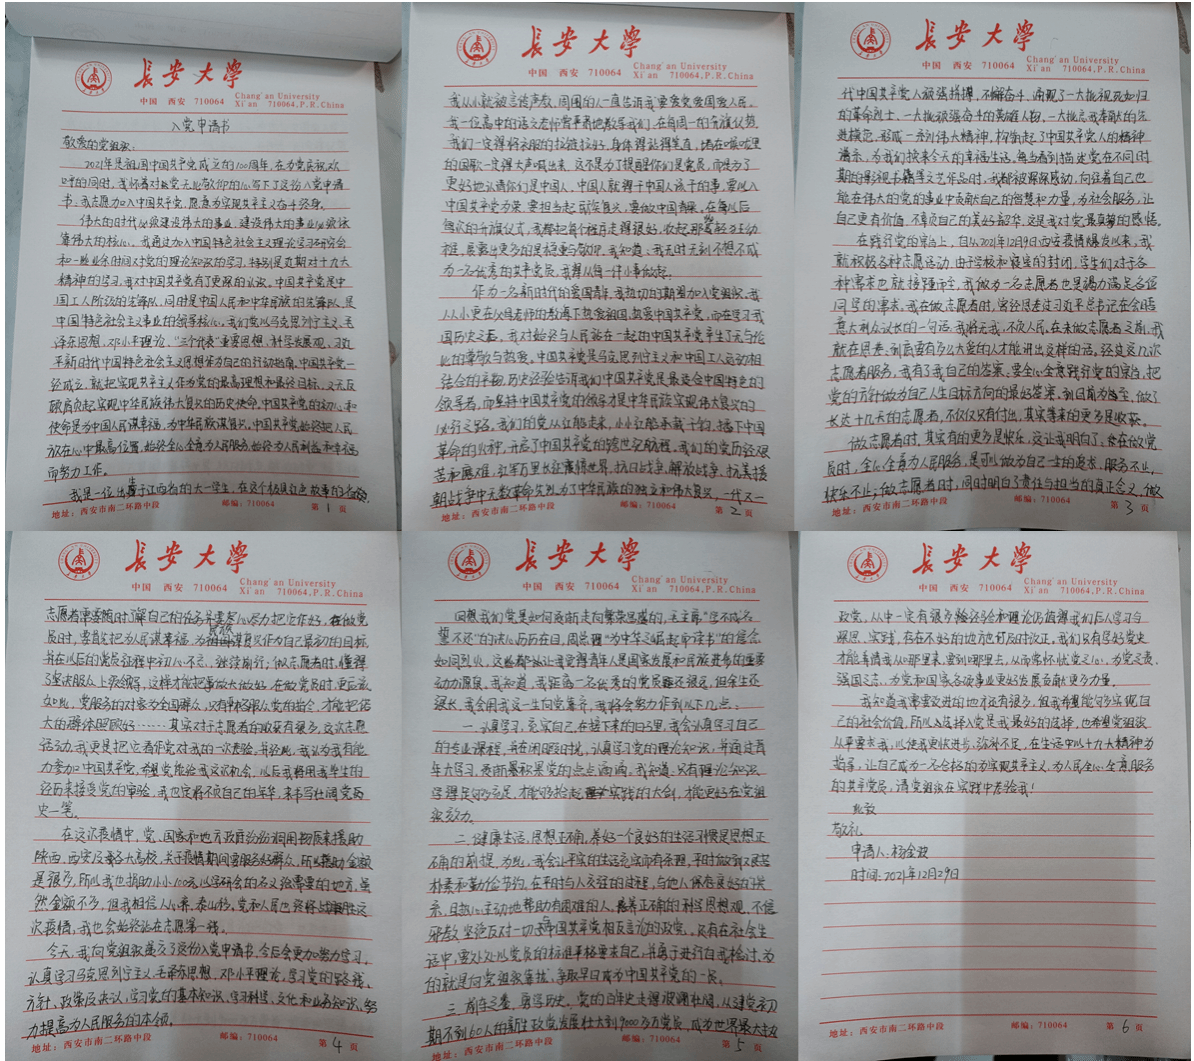 长安大学
中国 西安 710064
Chang'an University
Xi'an 710064,P.R.China
入党申请书
敬爱的党组织：
2021年是祖国中国共产党成立的100周年，在为党庆祝欢
呼的同时，我怀着对
党无比敬仰的心写下了这份入党申请
书，我志愿加入中国共产党，愿意为实现共产主义奋斗终身。
伟大的时代必须建设伟大的事业，建设伟大的事业必须依
靠伟大的核心。我通过加入中国特色社会主义理论学习研究会
和一些业余时间对党的理论知识的学习，特别是近期对十九大
精神的学习，我对中国共产党有了更深的认识，中国共产党是中
国工人阶级的先锋队，同时是中国人民和中华民族的先锋队，是
中国特色社会主义事业的领导核心。我们党以马克思列宁主义、毛
泽东思想、邓小平理论、“三个代表”重要思想、科学发展观、习近
平新时代中国特色社会主义思想作为自己的行动指南，中国共产党一
经成立，就把实现共产主义作为党的最高理想和最终目标，义无反
顾肩负起实现中华民族伟大复兴的历史使命，中国共产党的初心和
使命是为中国人民谋幸福，为中华民族谋复兴，中国共产党始终把人民
放在心中最高位置，始终全心全意为人民服务，始终为人民利益和幸福
而努力工作。
我是一位出生于江西省的大一学生，在这个极具红色故事的
地址：西安市南二环路中段 邮编：710064 第1页
长安大学
中国 西安 710064
Chang'an University
Xi'an 710064,P.R.China
我从小就被言传身教，周围的人一直告诉我要爱党爱国爱人民。
我一位高中的语文老师曾严肃地教导我们，在每周一的升旗仪式
我们一定得将衣服的拉链拉好，身体得站得笔直，
的国歌一定得大声唱出来，这不是为了提醒你们是党员，而是为了
更好地认清你们是中国人，中国人就得干中国人该干的事，要以入
中国共产党为荣，要担当起民族复兴，要做中国青年，在每以后
每次的升旗仪式，我都把每个程序走得很好，收起那些轻
，我知道，我无时无刻不想不成
为一名优秀的共产党员，我得从每一件小事做起。
作为一名新时代的爱国青年，我热切的期望加入党组织，我
从小更在父母老师的教导下热爱祖国，热爱中国共产党，而在学习我
国历史之后，我对始终与人民站在一起的中国共产党产生了无与伦
比的尊敬与热爱。中国共产党是马克思列宁主义和中国工人运动相
结合的产物，历史经验告诉我们中国共产党是最适合中国特色的
领导者，而坚持中国共产党的领导才是中华民族实现伟大复兴的
必行之路。我们的党从红船走来，小小红船承载千钧，播下中国
革命的火种，开启了中国共产党的跨世纪航程，我们的党历经艰
苦和磨难，红军万里长征震撼世界，抗日战争，解放战争，抗美援
朝战争中无数革命先烈，为了中华民族的独立和伟大复兴，一代一
地址：西安市南二环路中段 邮编：710064 第2页
长安大学
中国 西安 710064
Chang'an University
Xi'an 710064,P.R.China
代中国共产党人顽强拼搏，不懈奋斗，涌现了一大批视死如归
的革命烈士，一大批顽强奋斗的英雄人物，一大批忘我奉献的先
进模范，形成一系列伟大精神，构筑起了中国共产党人的精神
谱系，为我们换来今天的幸福生活，每当看到描述党在不同时
期的影视书籍等文艺作品时，我都被深深感动，向往着自己也
能在伟大的党的事业中贡献自己的智慧和力量，为社会服务，让
自己更有价值，不负自己的美好韶华，这是我对党最真挚的感悟。
在践行党的宗旨上，自从2021年12月9日西安疫情爆发以来，我
就积极各种志愿活动，由于学校和寝室的封闭，学生们对于各
种需求也就接踵而至，我做为一名志愿者也是竭力满足各位
同学的需求。我在做志愿者时，曾经思考过习近平总书记在会晤
意大利众议长的一句话，我将无我，不负人民，在未做志愿者之前，我
就在思考，到底要有多么大爱的人才能讲出这样的话，经过这几次
志愿者服务，我有了我自己的答案，要全心全意践行党的宗旨，把
党的方针做为自己人生目标方向的最好答案，到目前为止，做了
长达十几天的志愿者，不仅仅只有付出，其实等来的更多是收获。
做志愿者时，其实有的更多是快乐，这让我明白了，要在做党
员时，全心全意为人民服务，是可以做为自己一生的追求，服务不止，
快乐不止；做志愿者时，同时明白了责任与担当的真正含义，做
地址：西安市南二环路中段 邮编：710064 第3页
长安大学
中国 西安 710064
Chang'an University
Xi'an 710064,P.R.China
志愿者需要随时了解自己的任务并要尽心尽力把它做好，在做党
员时，要首先把为人民谋幸福，为民族谋复兴作为自己最初的目标，
并在以后的党员征程中初心不忘，继续前行；做志愿者时，懂得
了坚决服从上级领导，这样才能把事做大做好，在做党员时，更应该
如此，党服务的对象为全国群众，只有积极服从党的指令，才能把偌
大的群体照顾好……其实对于志愿者的收获有很多，这次志愿
活动，我更是把它看作党对我的一次考验，并经此，我认为我有能
力参加中国共产党，希望党能给我这次机会，以后我将用我毕生的
经历来接受党的审验，我也定将不负自己的年华，来书写壮阔党历
史一笔。
在这次疫情中，党、国家和地方政府纷纷调用物资来援助
陕西，西安及各大高校，关于疫情期间要服务好群众，所以援助金额
是很多，所以我也捐助小小100元以学研会的名义给需要的地方，虽
然金额不多，但我相信人心齐，泰山移，党和人民也终将战胜这
次疫情，我也会始终站在志愿第一线。
今天，我向党组织递交了这份入党申请书，今后会更加努力学习，
认真学习马克思列宁主义、毛泽东思想、邓小平理论，学习党的路线、
方针、政策及决议，学习党的基本知识，学习科学、文化和业务知识，努
力提高为人民服务的本领。
地址：西安市南二环路中段 邮编：710064 第4页
长安大学
中国 西安 710064
Chang'an University
Xi'an 710064,P.R.China
回想我们党是如何逐渐走向繁荣昌盛的，毛主席“学不成名
誓不还”的决心历历在目，周总理“为中华之崛起而读书”的信念
如同烈火，这些都让我觉得青年人是国家发展和民族进步的重要
动力源泉。我知道，我距离一名优秀的党员还很远，但余生还
很长，我会用我这一生向党靠齐，我将会努力作到以下几点：
一、认真学习，充实自己，在接下来的日子里，我会认真学习自己
的专业课程，并在闲暇时候，认真学习党的理论知识，并通过青
年大学习，逐渐累积累党的点点滴滴，我知道，只有理论知识
学得足够充足，才能够抡起实践的大剑，才能更好在党组
织效力。
二、健康生活，思想正确，养好一个良好的生活习惯是思想正
确的前提，为此，我会让平实的生活充实而有条理，平时做到艰苦
朴素和勤俭节约，在平时与人交往的过程，与他人保存良好的关
系，且热心主动地帮助有困难的人，培养正确的科学思想观，不信
邪教，坚决反对一切与中国共产党相反言论的政党。还有在社会生
活中，要处处以党员的标准严格要求自己，并勇于进行自我检讨，为
的就是向党组织靠拢，争取早日成为中国共产党的一员。
三、咸在久卷，勇学历史，党的百年史走得波澜壮阔，从建党初
期不到60人的新生政党发展壮大到9000多万党员，成为世界最大执
地址：西安市南二环路中段 邮编：710064 第5页
长安大学
中国 西安 710064
Chang'an University
Xi'an 710064,P.R.China
政党，从中一定有很多经验和理论仍值得我们后人学习与
深思、实践，存在不好的地方也能及时改正，我们只有学好党史
才能弄清我从哪里来，要到哪里去，从而常怀忧党之心，为党之责，
强国之志，为党和国家各项事业更好发展贡献更多力量。
我知道我需要改进的地方还有很多，但我希望能够多实现自
己的社会价值，所以入选择入党是我最好的选择，也希望党组织
从严要求我，以使我更快进步，弥补不足，在生活中以十九大精神为
指导，让自己成为一名合格的为实现共产主义，为人民全心全意服务
的共产党员，请党组织在实践中考验我！
此致
敬礼
申请人：杨金波
时间：2021年12月29日
地址：西安市南二环路中段 邮编：710064 第6页